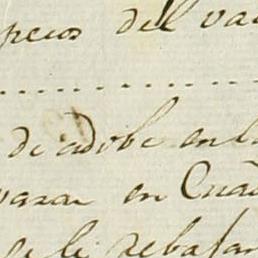 pesos del val
de adobe en l
varar en Cua
se le rebajar